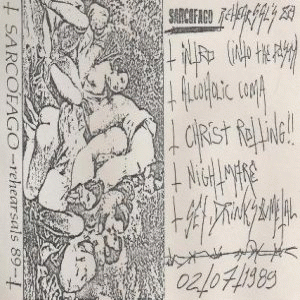 † SARCOFAGO -rehearsals 89- †
SARCOFAGO REHEARSALS 89
† INTRO (INTO THE
† ALCOHOLIC COMA
† CHRIST ROTTING!!
† NIGHTMARE
† SEX, DRINKS & METAL
02/07/1989